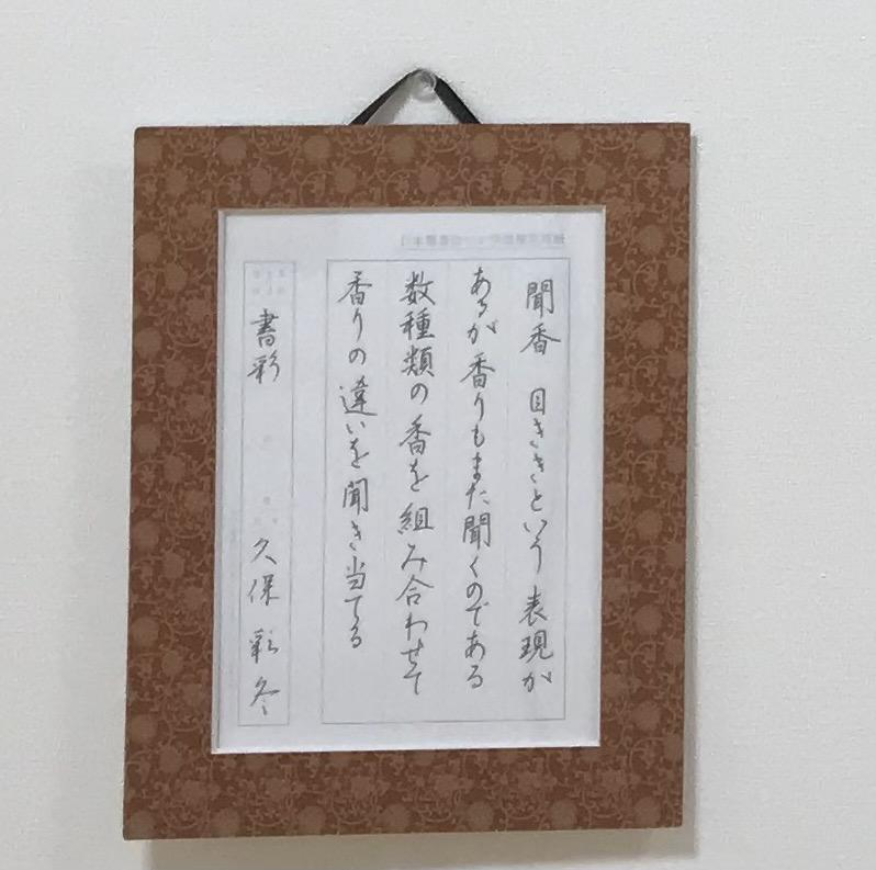 聞香　目ききという表現が
あるが香りもまた聞くのである
数種類の香を組み合わせて
香りの違いを聞き当てる
書彩　久保彩冬